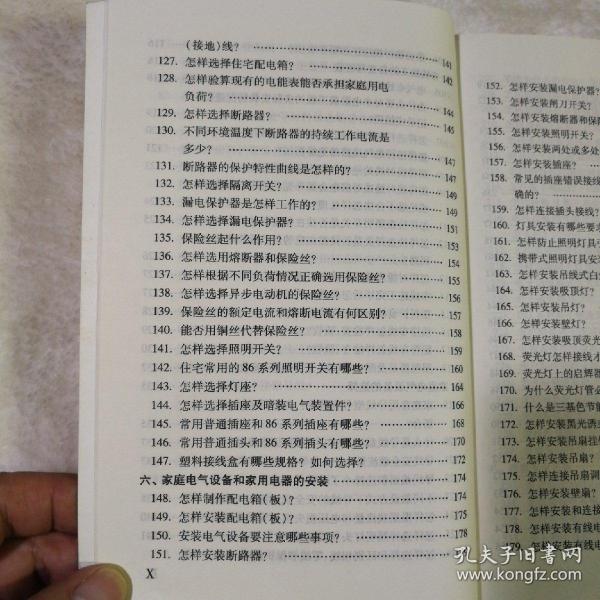 (接地)线? 141
127. 怎样选择住宅配电箱? 142
128. 怎样验算现有的电能表能否承担家庭用电
负荷? 144
129. 怎样选择断路器? 145
130. 不同环境温度下断路器的持续工作电流是
多少? 147
131. 断路器的保护特性曲线是怎样的? 147
132. 怎样选择隔离开关? 149
133. 漏电保护器是怎样工作的? 149
134. 怎样选择漏电保护器? 151
135. 保险丝起什么作用? 153
136. 怎样选用熔断器和保险丝? 154
137. 怎样根据不同负荷情况正确选用保险丝? 155
138. 怎样选择异步电动机的保险丝? 156
139. 保险丝的额定电流和熔断电流有何区别? 157
140. 能否用铜丝代替保险丝? 158
141. 怎样选择照明开关? 160
142. 住宅常用的 86 系列照明开关有哪些? 160
143. 怎样选择灯座? 164
144. 怎样选择插座及暗装电气装置件? 166
145. 常用普通插座和 86 系列插座有哪些? 168
146. 常用普通插头和 86 系列插头有哪些? 170
147. 塑料接线盒有哪些规格? 如何选择? 172
六、家庭电气设备和家用电器的安装 174
148. 怎样制作配电箱(板)? 174
149. 怎样安装配电箱(板)? 175
150. 安装电气设备要注意哪些事项? 178
151. 怎样安装断路器? 179
X
152. 怎样安装漏电保护器?
153. 怎样安装闸刀开关?
154. 怎样安装熔断器和保险
155. 怎样安装照明开关?
156. 怎样安装两处或多处
157. 怎样安装插座?
158. 常见的插座错误接线
确的?
159. 怎样连接插头接线?
160. 灯具安装有哪些要求
161. 怎样防止照明灯具引
162. 携带式照明灯具安装
163. 怎样安装吊线式白
164. 怎样安装吸顶灯?
165. 怎样安装吊灯?
166. 怎样安装壁灯?
167. 怎样安装吸顶荧光
168. 荧光灯怎样接线才
169. 荧光灯上的启辉器
170. 为什么荧光灯管必
171. 什么是三基色节能
172. 怎样安装黑光诱
173. 怎样安装吊扇挂
174. 怎样安装吊扇?
175. 怎样连接吊扇调
176. 怎样安装壁扇?
177. 怎样安装和连接
178. 怎样安装有线电
179. 怎样安装有线电
孔夫子旧书网
www.kongfz.com